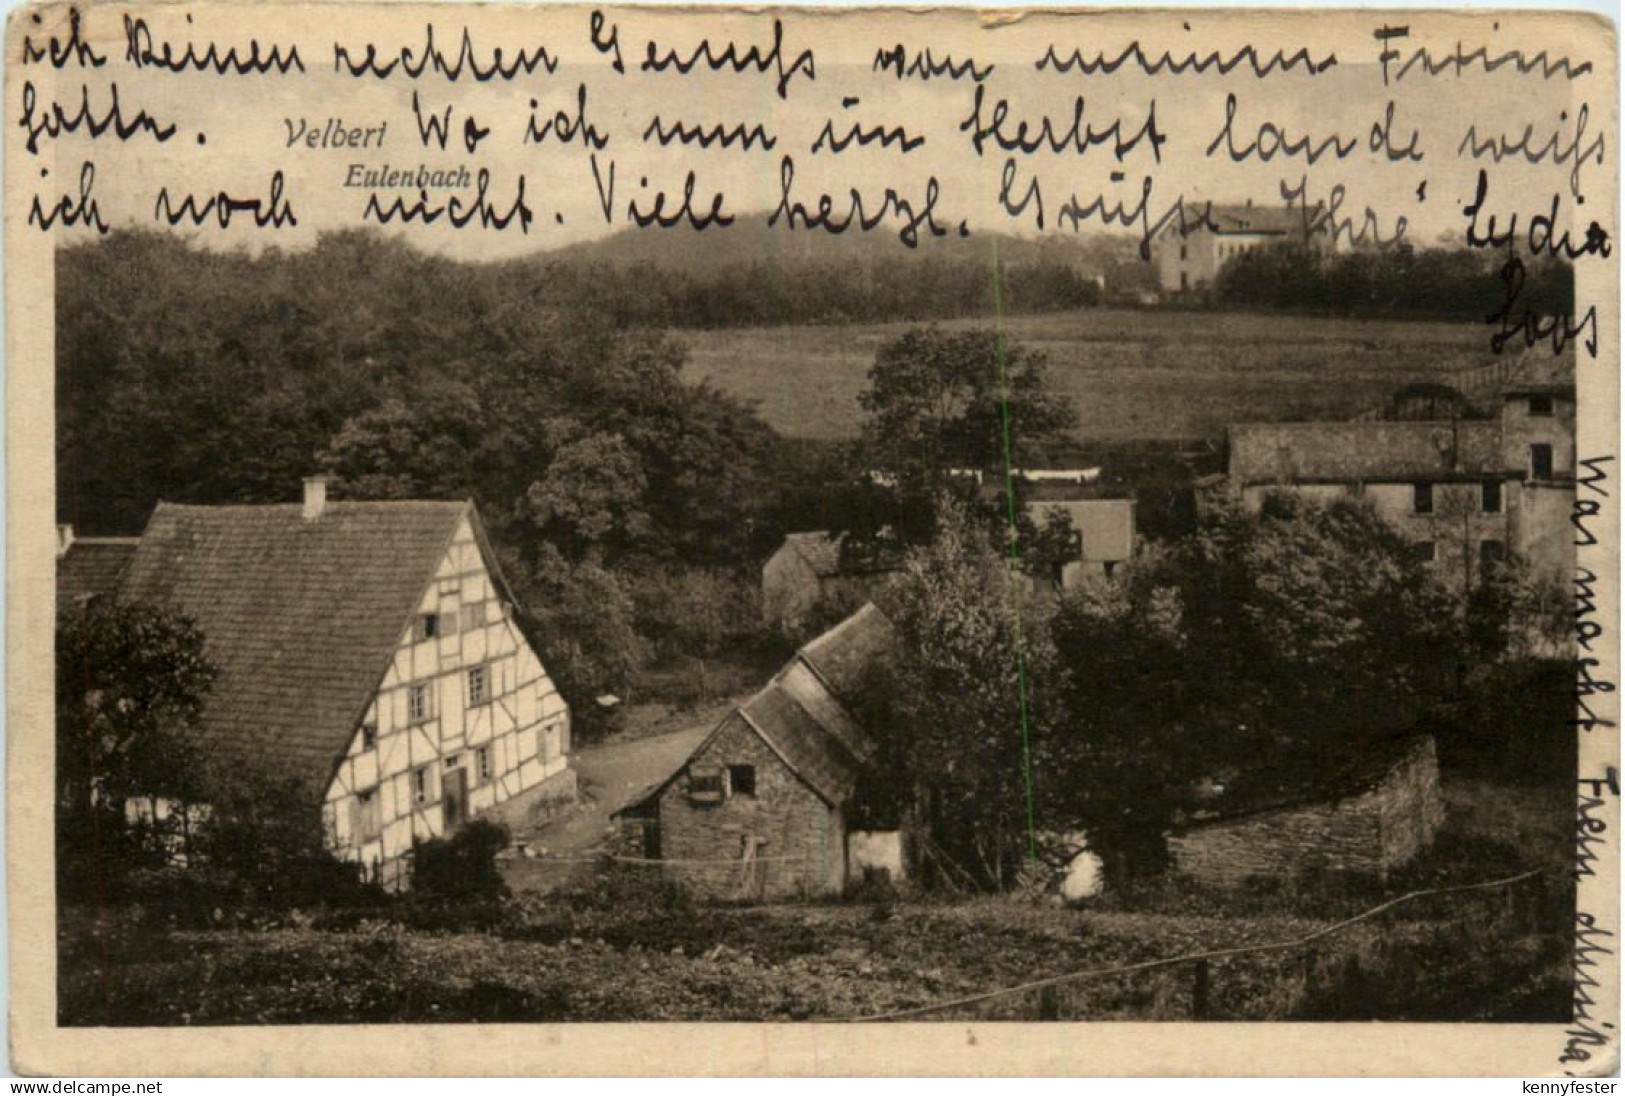 ich keinen rechten Genuss von meinen Ferien
hatte. Wo ich nun im Herbst lande weiss
ich noch nicht. Viele herzl. Grüsse Ihre Lydia
Loos
Velbert
Eulenbach
Was macht Fren dhnika.
www.delcampe.net
kennyfester